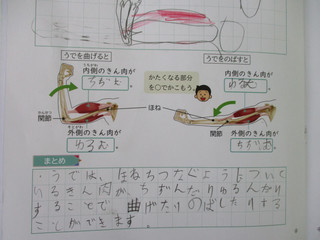 うでを曲げると
うでをのばすと
内側のきん肉が
ちぢむ
かたくなる部分
を○でかこもう。
内側のきん肉が
ゆるむ
関節
ほね
関節
外側のきん肉が
ゆるむ
外側のきん肉が
ちぢむ
まとめ
うでは、ほねをつなぐようについて
いるきん肉が、ちぢんだりゆるんだり
することで、曲げたりのばしたりする
ことができます。